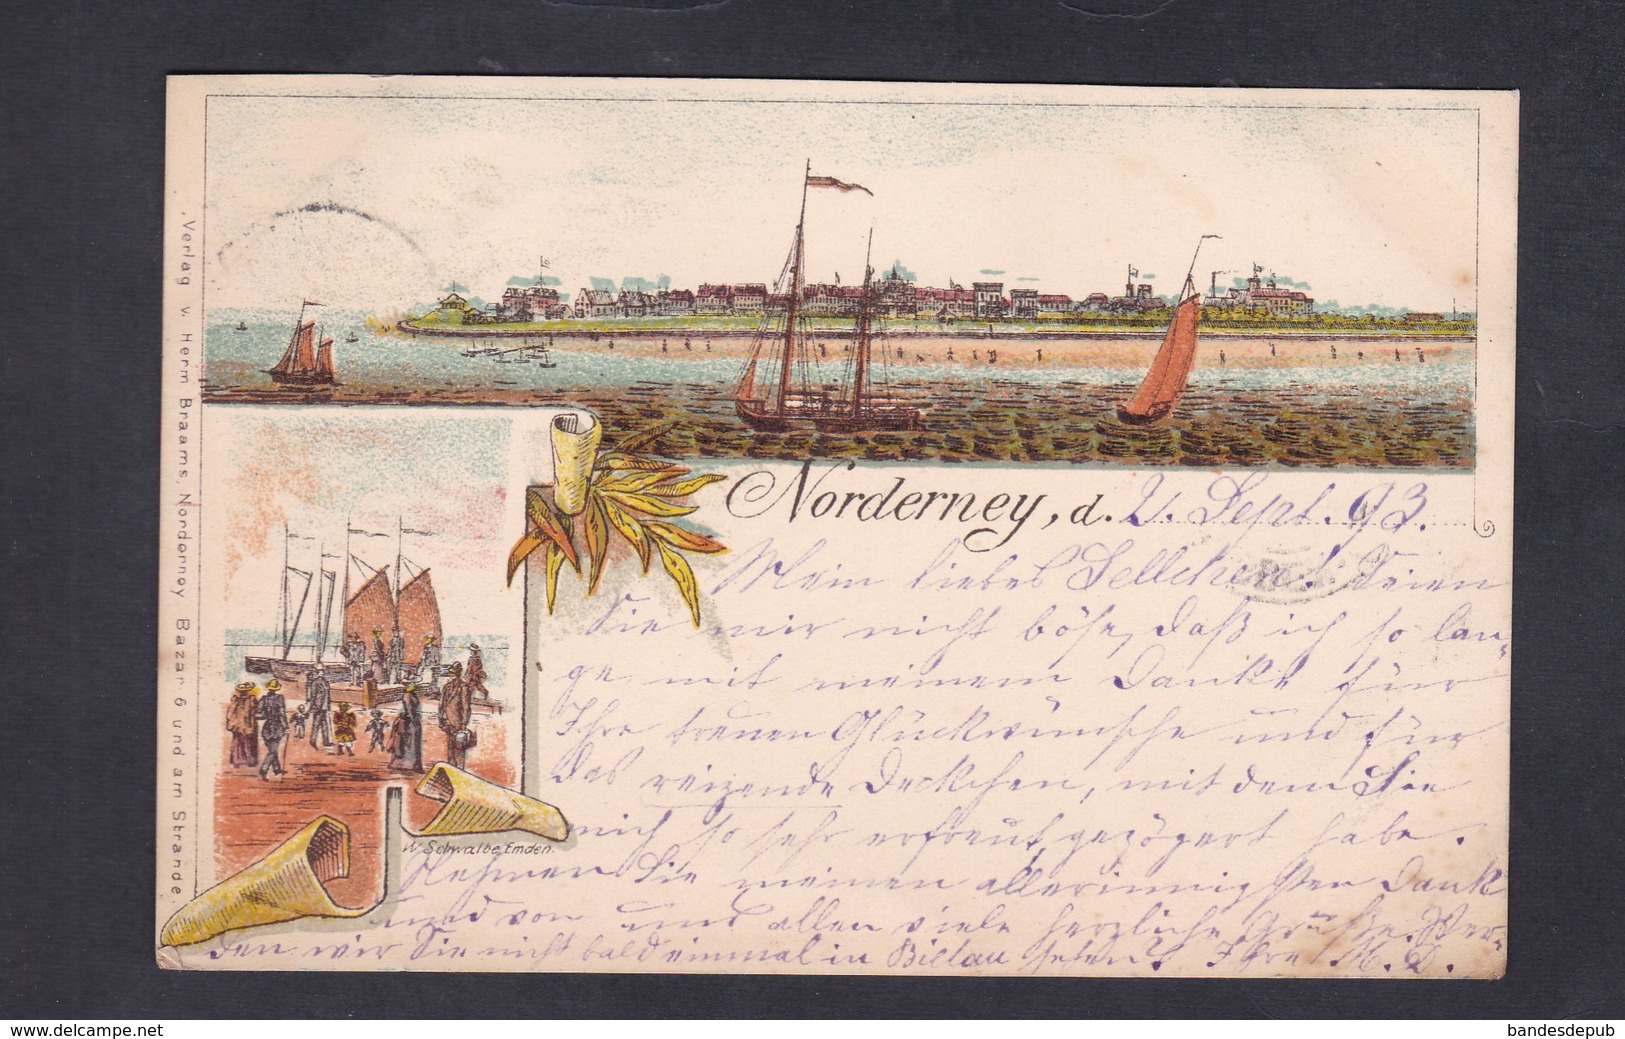 Verlag v. Herm. Braams, Norderney Bazar 6 und am Strande.
Norderney, d. 2. Sept. 93.
Mein liebes Sellchen! Seien
Sie mir nicht böse, daß ich so lan-
ge mit meinem Danke für
Ihre treuen Glückwünsche und für
das reizende Deckchen, mit dem Sie
mich so sehr erfreut, gezögert habe.
W. Schwalbe, Emden.
Nehmen Sie meinen allerinnigsten Dank
und von uns allen viele herzliche Grüße. Wer-
den wir Sie nicht bald einmal in Bielau sehen? Ihre M. D.
www.delcampe.net
bandesdepub